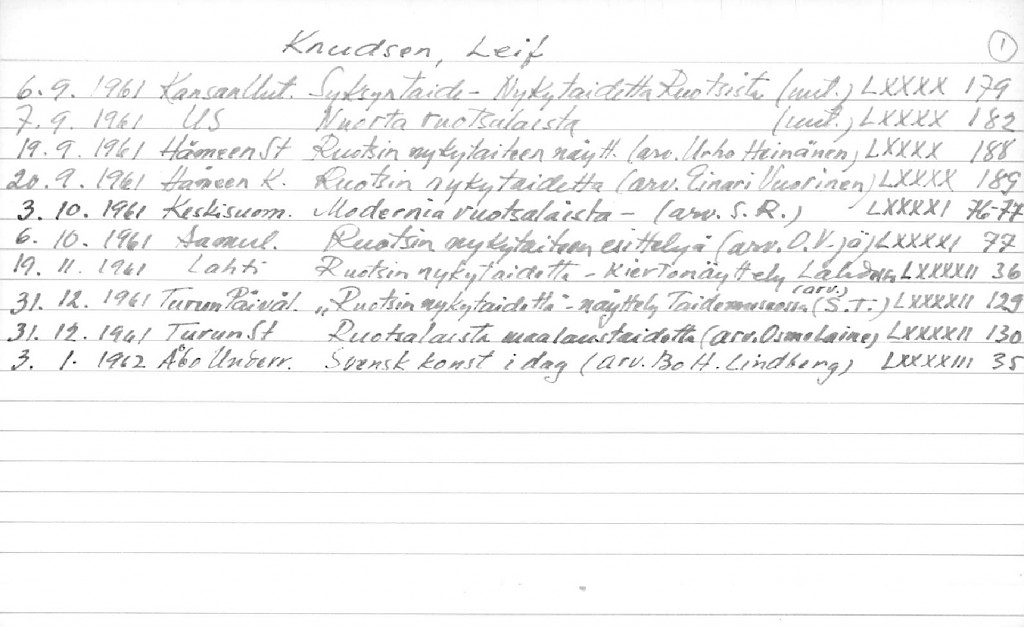 Knudsen, Leif 1
6.9.1961 Kansan Uut. Syksyn taide - Nykytaidetta Ruotsista (uut.) LXXXX 179
7.9.1961 US Nuorta ruotsalaista (uut.) LXXXX 182
19.9.1961 Hämeen St Ruotsin nykytaiteen näytt. (arv. Urho Heinänen) LXXXX 188
20.9.1961 Hämeen K. Ruotsin nykytaidetta (arv. Einari Vuorinen) LXXXX 189
3.10.1961 Keskisuom. Modernia ruotsalaista - (arv. S.R.) LXXXXI 76-77
6.10.1961 Aamul. Ruotsin nykytaiteen esittelyä (arv. O.V-jä) LXXXXI 77
19.11.1961 Lahti Ruotsin nykytaidetta - kiertonäyttely Lahdessa LXXXXII 36
31.12.1961 Turun Päiväl. "Ruotsin nykytaidetta" - näyttely Taidemuseossa (arv.) (S.T:) LXXXXII 129
31.12.1961 Turun St Ruotsalaista maalaustaidetta (arv. Osmo Laine) LXXXXII 130
3.1.1962 Åbo Underr. Svensk konst i dag (arv. Bo H. Lindberg) LXXXXIII 35